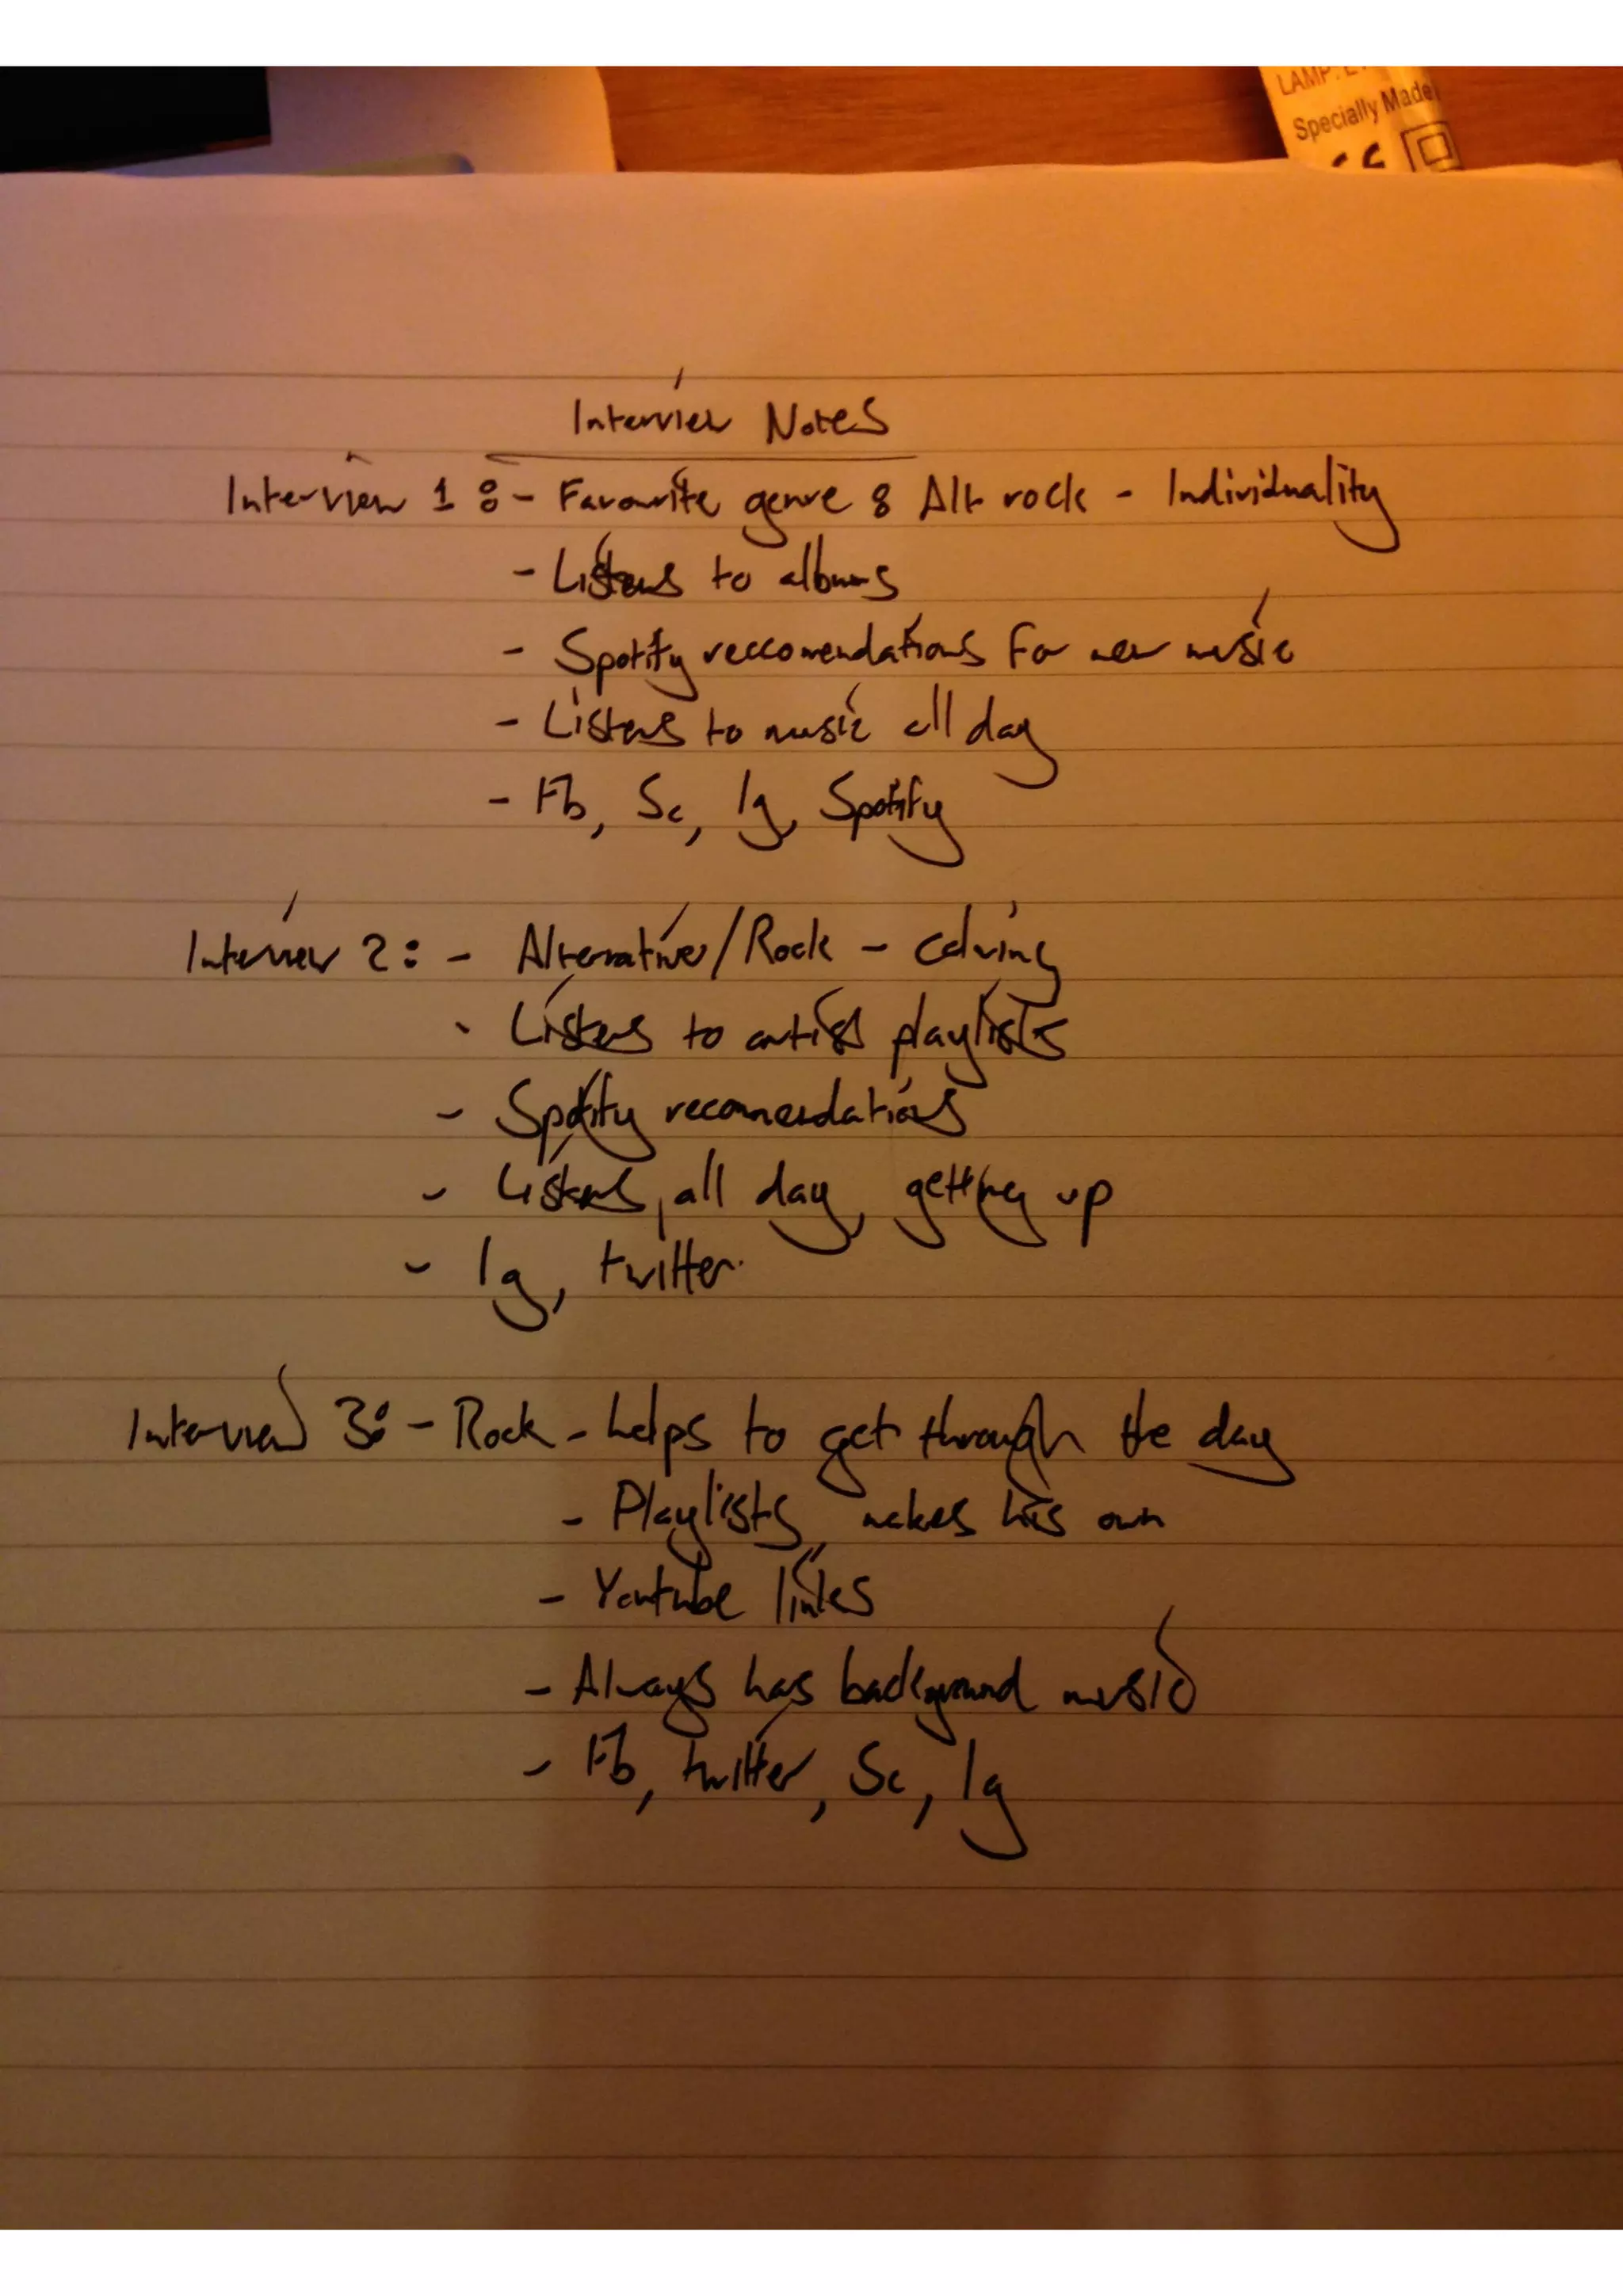 LAMP: E
Specially Made
Interview Notes
Interview 1 :- Favourite genre : Alt rock - Individuality
- Listens to albums
- Spotify reccomendations for new music
- Listens to music all day
- Fb, Sc, Ig, Spotify
Interview 2: - Alternative/Rock - calming
- Listens to artist playlists
- Spotify recommendations
- Listens, all day, getting up
- Ig, twitter.
Interview 3: - Rock - helps to get through the day
- Playlists, makes his own
- Youtube links
- Always has background music
- Fb, twitter, Sc, Ig